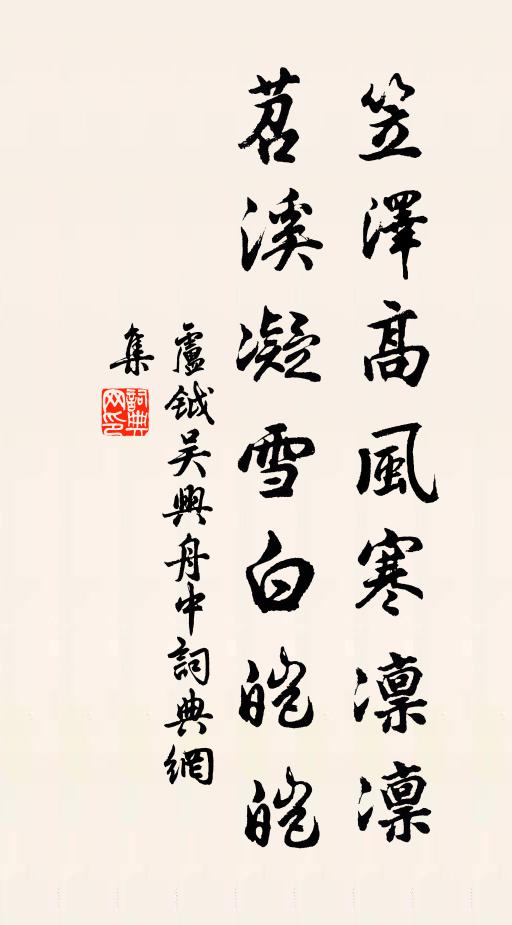 笠澤高風寒凜凜
苕溪凝雪白皚皚
盧鉞吴興舟中詞典網
集
詞典
网印